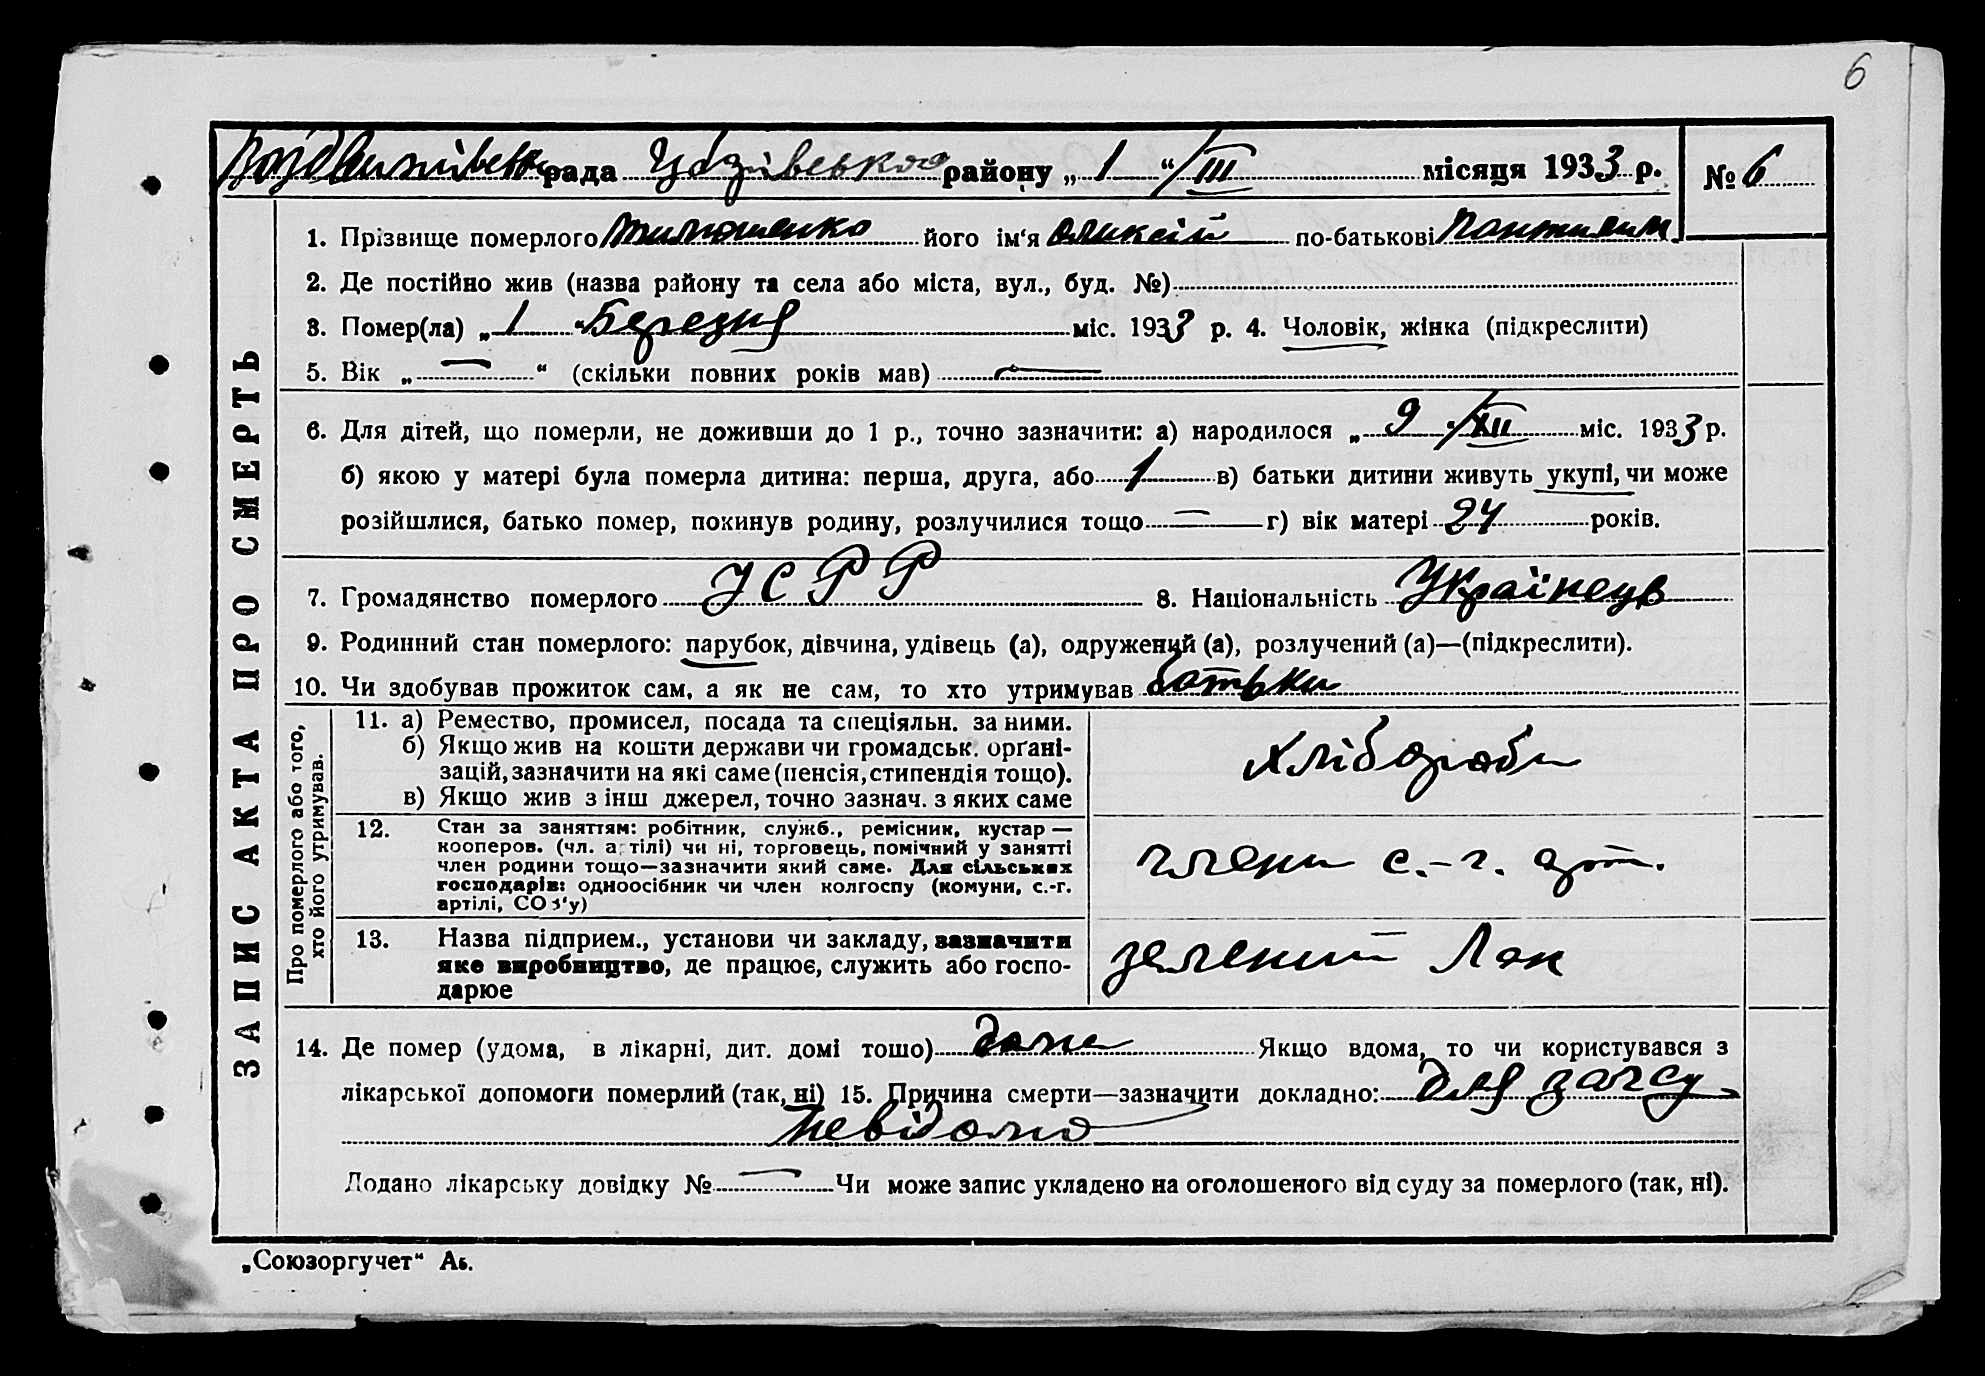 6
Воздвижівська рада Ц району „ 1 “ /III місяця 1933 р. № 6
ЗАПИС АКТА ПРО СМЕРТЬ
1. Прізвище померлого Тимошенко його ім'я Оликсій по-батькові Пантилим
2. Де постійно жив (назва району та села або міста, вул., буд. №)
3. Помер(ла) „ 1 “ Березня міс. 1933 р. 4. Чоловік, жінка (підкреслити)
5. Вік „ — “ (скільки повних років мав) —
6. Для дітей, що померли, не доживши до 1 р., точно зазначити: а) народилося „ 9 “ /XII міс. 1933 р.
б) якою у матері була померла дитина: перша, друга, або 1 в) батьки дитини живуть укупі, чи може
розійшлися, батько помер, покинув родину, розлучилися тощо — г) вік матері 24 років.
7. Громадянство померлого УСРР 8. Національність Українець
9. Родинний стан померлого: парубок, дівчина, удівець (а), одружений (а), розлучений (а)—(підкреслити).
10. Чи здобував прожиток сам, а як не сам, то хто утримував батьки
Про померлого або того,
хто його утримував.
11. а) Ремество, промисел, посада та спеціяльн. за ними.
б) Якщо жив на кошти держави чи громадськ. організацій, зазначити на які саме (пенсія, стипендія тощо).
в) Якщо жив з інш джерел, точно зазнач. з яких саме
Хлібороби
12. Стан за заняттям: робітник, служб., ремісник, кустар —
кооперов. (чл. артілі) чи ні, торговець, помічний у занятті
член родини тощо—зазначити який саме. Для сільських
господарів: одноосібник чи член колгоспу (комуни, с.-г.
артілі, СОЗ'у)
члени с.-г. арт.
13. Назва підприєм., установи чи закладу, зазначити
яке виробництво, де працює, служить або госпо-
дарюе
зелений Лан
14. Де помер (удома, в лікарні, дит. домі тошо) дома Якщо вдома, то чи користувався з
лікарської допомоги померлий (так, ні) 15. Причина смерти—зазначити докладно: для загсу
невідомо
Додано лікарську довідку № — Чи може запис укладено на оголошеного від суду за померлого (так, ні).
„Союзоргучет“ Аь.